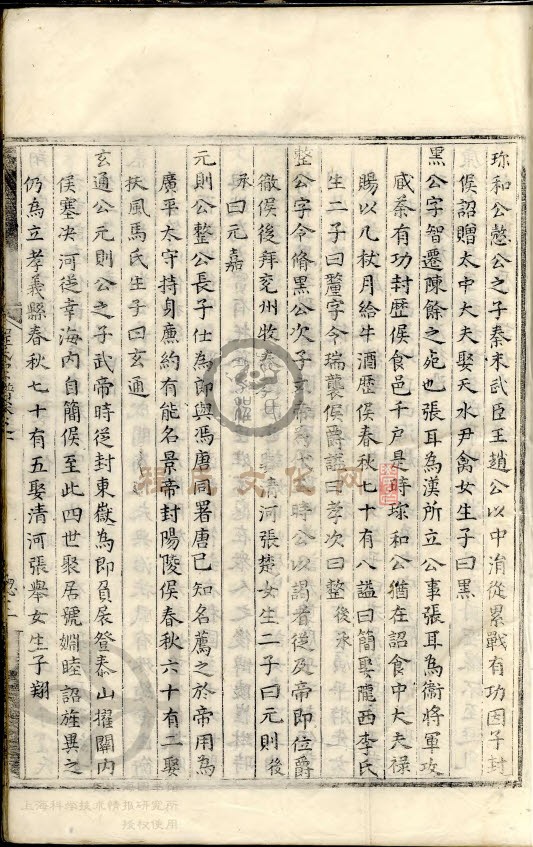 珎和公憨公之子秦末武臣王趙公以中涓從累戰有功因子封
侯詔贈太中大夫娶天水尹禽女生子曰黑
黑公字智遷陳餘之宛也張耳為漢所立公事張耳為衛將軍攻
臧荼有功封歷侯食邑千户是時珎和公猶在詔食中大夫祿
賜以几杖月給牛酒歷侯春秋七十有八謚曰簡娶隴西李氏
生二子曰釐字令瑞襲侯爵謚曰孝次曰整
整公字令脩黑公次子文帝時公以謁者從及帝即位爵
徹侯後拜兗州牧清河張楚女生二子曰元則後
永曰元嘉
元則公整公長子仕為郎與馮唐同署唐已知名薦之於帝用為
廣平太守持身廉約有能名景帝封陽陵侯春秋六十有二娶
扶風馬氏生子曰玄通
玄通公元則公之子武帝時從封東嶽為郎負扆登泰山擢關内
侯塞决河從幸海内自簡侯至此四世聚居號婣睦詔旌異之
仍為立孝義縣春秋七十有五娶清河張舉女生子翔
程氏文化网
上海科学技术情报研究所
授权使用